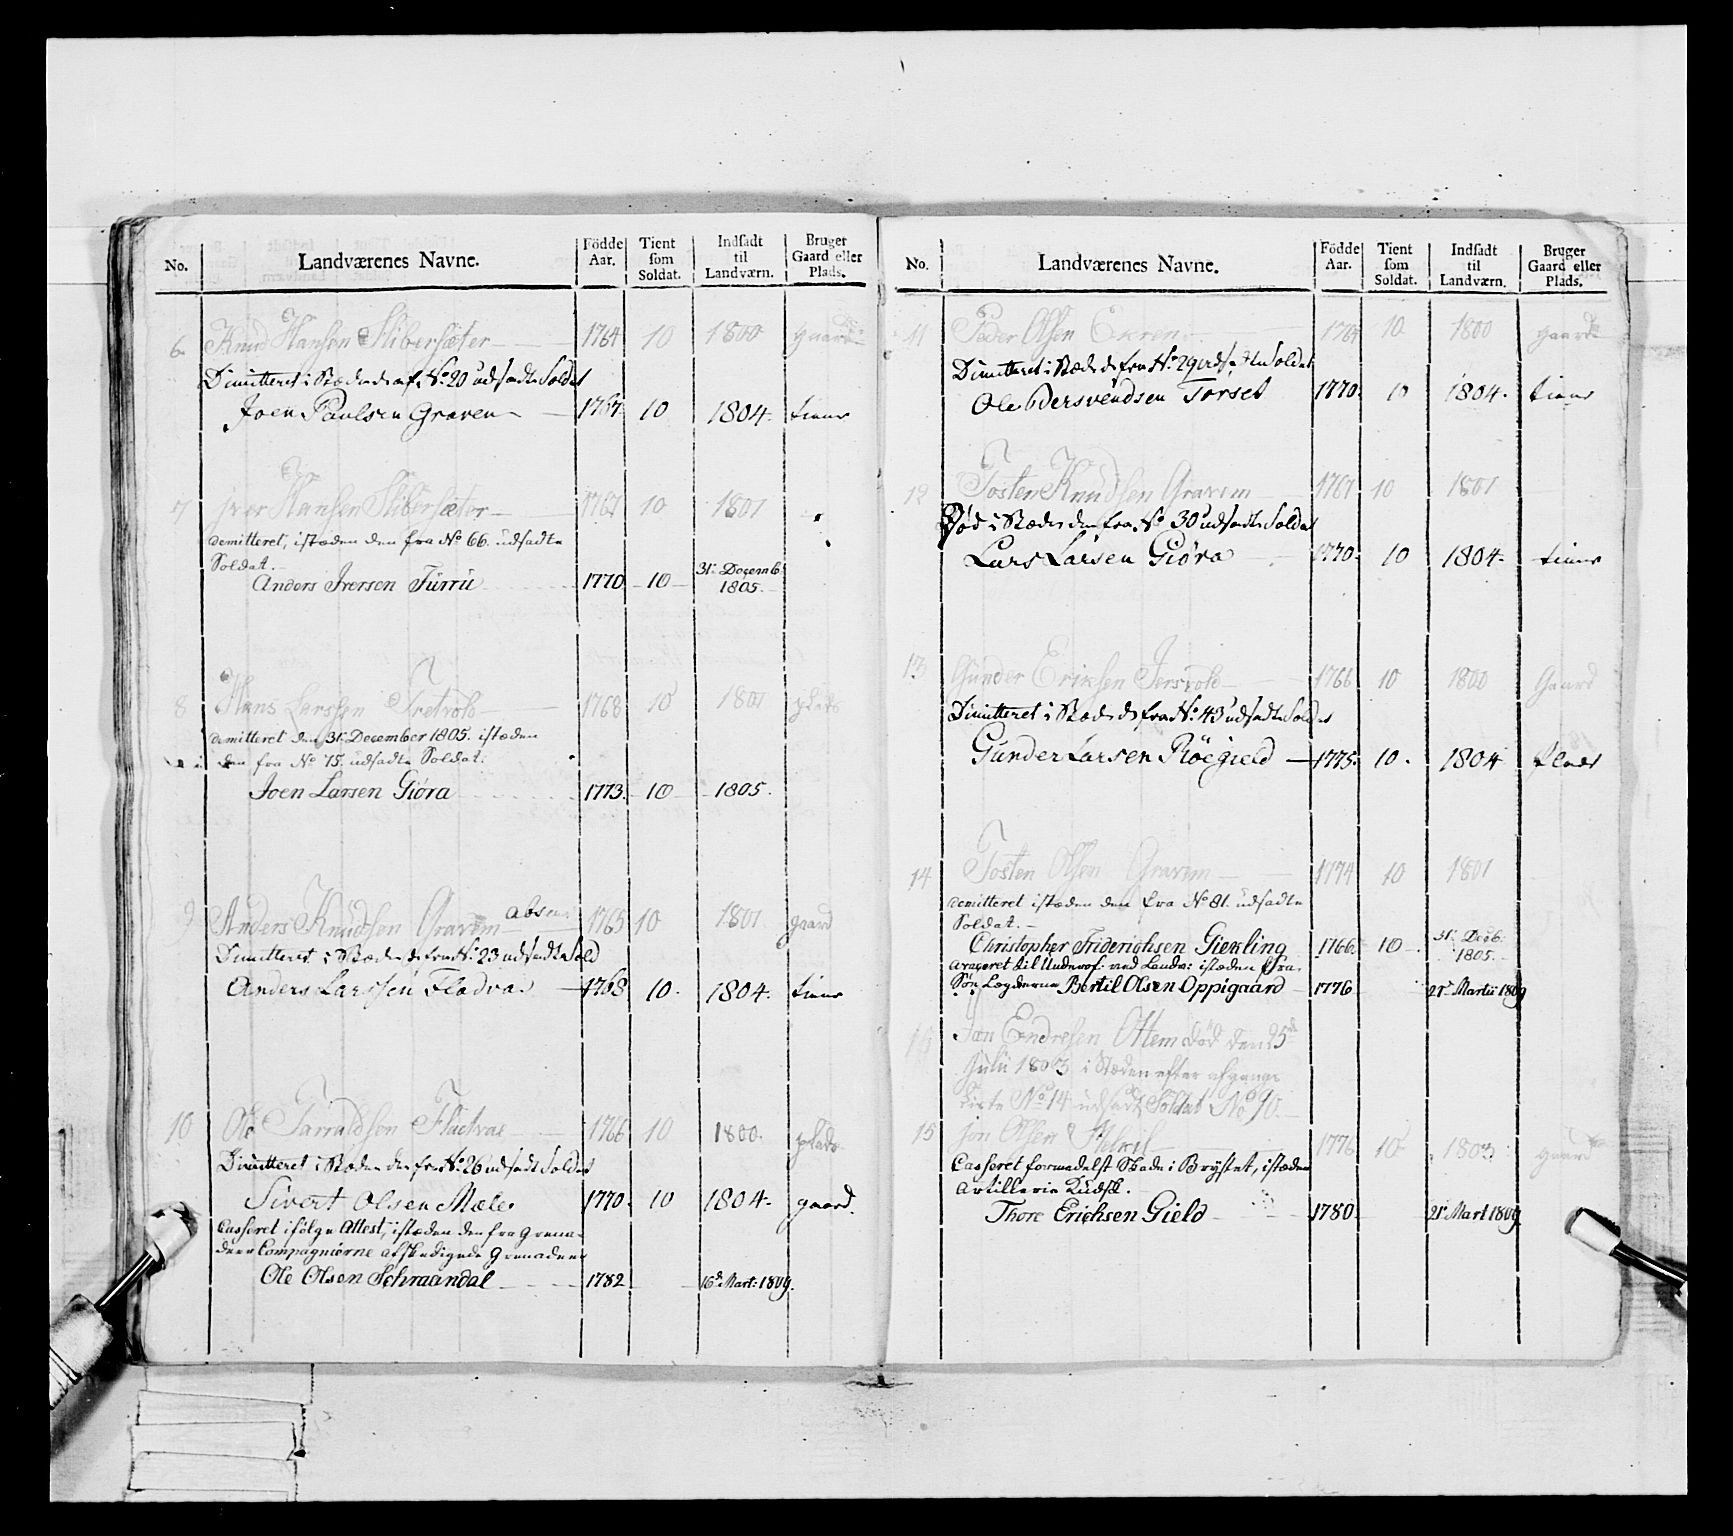 No. Landværenes Navne. Födde Aar. Tient som Soldat. Indsadt til Landværn. Bruger Gaard eller Plads.
6. Knud Hansen Slibersæter 1764 10 1800 gaard
Dimitteret i Stæden af No 20 udsadte Soldat
Joen Paulsen Graven 1767 10 1804. tiener
7 Iver Hansen Slibersæter 1767 10 1801
demitteret, istæden den fra No 66. udsadte
Soldat.
Anders Iversen Furru 1770 10 31. Decemb. 1805.
8 Hans Larsen Tretvold 1768 10 1801 plads
demitteret den 31 December 1805. istæden
den fra No 75. udsadte Soldat.
Joen Larsen Giöra 1773. 10 1805.
9 Anders Knudsen Gravem absen. 1765 10 1801 gaard
Dimitteret i Stæden den fra No. 23 udsadte Sold
Anders Larssen Flodvæ 1768 10. 1804. tiener
10 Ole Flaetvae 1766 10 1800. plads
Dimitteret i Stæden den fra No. 26 udsadte Soldat
Sivert Olsen Mæle 1770. 10 1804. gaard.
Casseret ifölge Attest, istæden den fra Grena-
deer Compagnierne afskedigede Grenadeer
Ole Olsen Schraandal 1782 16de Mart: 1809.
No. Landværenes Navne. Födde Aar. Tient som Soldat. Indsadt til Landværn. Bruger Gaard eller Plads.
11 Peder Olsen Ekren 1764 10 1800 gaard
Dimitteret i Stæden den fra No. 29 udsadte Soldat
Ole Torset 1770. 10 1804. tiener
12 Tosten Knudsen Gravem 1767 10 1801
Död i Stæden den fra No. 30 udsadte Soldat
Lars Larsen Giöra 1770. 10 1804. tiener
13 Gunder Eriksen Jersvold 1766 10 1800 Gaard
Dimitteret i Stæden den fra No. 43 udsadte Soldat
Gunder Larsen Röegield 1775. 10. 1804 Plads
14 Tosten Olsen Gravem 1774 10 1801
demitteret istæden den fra No 81. udsadte
Soldat.
Christopher Friderichsen Giekling 1766. 10 31. Decb. 1805.
avanceret til Underof: ved Landv: istæden fra
Sön: Lægderne Bertil Olsen Oppigaard 1776 21de Martii 1809
15 Jon Endresen Ottem död den 25de
Julii 1803. i Stæden efter afgangs
Liste No 14 udsadt Soldat No 90.
15 jon Olsen 1776 10 1803 gaard
Casseret formedelst Skade i Brystet, istæden
Artillerie Kudsk.
Thore Erichsen Gield 1780. 21. Mart 1809.